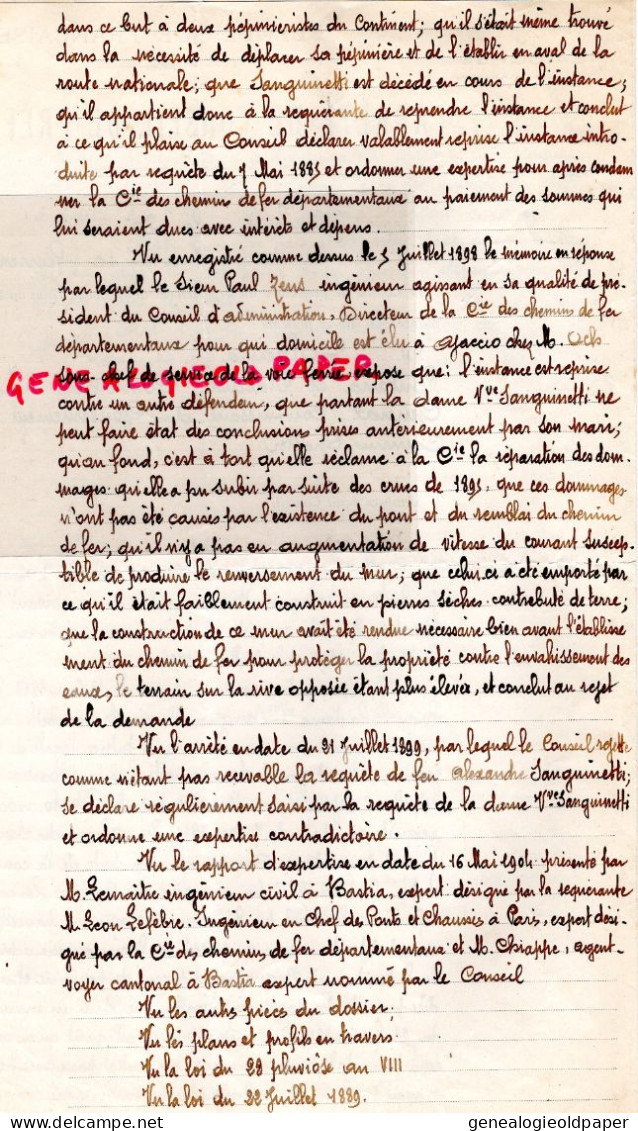 dans ce but à deux pépinièristes du Continent; qu'il s'était même trouvé
dans la nécessité de déplacer sa pépinière et de l'établir en aval de la
route nationale; que Sanguinetti est décédé en cours de l'instance;
qu'il appartient donc à la requérante de reprendre l'instance et conclut
à ce qu'il plaise au Conseil déclarer valablement reprise l'instance intro-
duite par requête du 7 Mai 1895 et ordonner une expertise pour après condam
ner la Cie des chemins de fer départementaux au paiement des sommes qui
lui seraient dues avec intérêts et dépens.
Vu enregistré comme dessus le 5 Juillet 1898 le mémoire en réponse
par lequel le Sieur Paul Zens ingénieur agissant en sa qualité de pré-
sident du Conseil d'administration, Directeur de la Cie des chemins de fer
départementaux pour qui domicile est élu à Ajaccio chez M. Ochs
sous-chef de service de la voie ferrée expose que: l'instance est reprise
GENEALOGIE OLD PAPER
contre un autre défendeur, que partant la dame Vve Sanguinetti ne
peut faire état des conclusions prises antérieurement par son mari;
qu'au fond, c'est à tort qu'elle réclame à la Cie la réparation des dom-
mages qu'elle a pu subir par suite des crues de 1895, que ces dommages
n'ont pas été causés par l'existence du pont et du remblai du chemin
de fer; qu'il n'y a pas eu augmentation de vitesse du courant suscep-
tible de produire le renversement du mur; que celui-ci a été emporté par
ce qu'il était faiblement construit en pierres sèches contrebuté de terre;
que la construction de ce mur avait été rendue nécessaire bien avant l'établisse
ment du chemin de fer pour protéger la propriété contre l'envahissement des
eaux, le terrain sur la rive opposée étant plus élevée, et conclut au rejet
de la demande
Vu l'arrêté en date du 21 Juillet 1899, par lequel le Conseil rejette
comme n'étant pas recevable la requête de feu Alexandre Sanguinetti;
se déclare régulièrement saisi par la requête de la dame Vve Sanguinetti
et ordonne une expertise contradictoire.
Vu le rapport d'expertise en date du 16 Mai 1904 présenté par
M. Lemaitre ingénieur civil à Bastia, expert désigné par la requérante
M. Leon Lefèbre. Ingénieur en Chef des Ponts et Chaussés à Paris, expert dési-
gné par la Cie des chemins de fer départementaux et M. Chiappe, agent-
voyer cantonal à Bastia expert nommé par le Conseil
Vu les autres pièces du dossier;
Vu les plans et profils en travers
Vu la loi du 28 pluviôse an VIII
Vu la loi du 22 Juillet 1889.
genealogieoldpaper